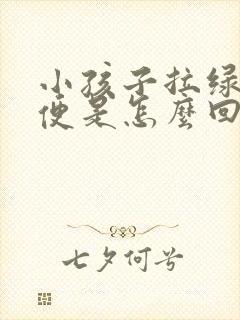 小孩子拉绿
便是怎麼回
七夕何兮